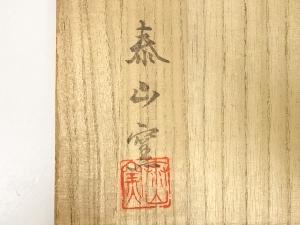 泰山窯